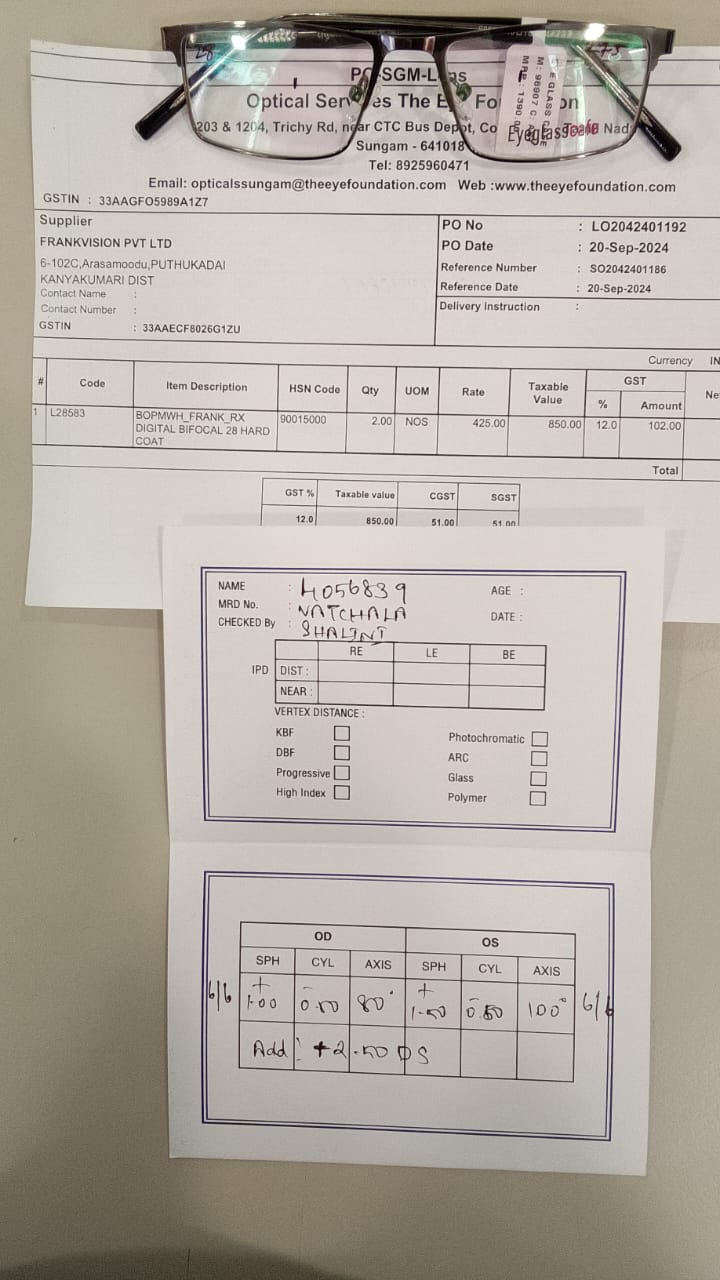 PO-SGM-Lens
Optical Services The Eye Foundation
203 & 1204, Trichy Rd, near CTC Bus Depot, Co Nadu
Sungam - 641018
Tel: 8925960471
Email: opticalssungam@theeyefoundation.com Web :www.theeyefoundation.com
GSTIN : 33AAGFO5989A1Z7
M: 96907 C
MRP : 1390
EYE GLASS
Supplier
FRANKVISION PVT LTD
6-102C,Arasamoodu,PUTHUKADAI
KANYAKUMARI DIST
Contact Name :
Contact Number :
GSTIN : 33AAECF8026G1ZU
PO No : LO2042401192
PO Date : 20-Sep-2024
Reference Number : SO2042401186
Reference Date : 20-Sep-2024
Delivery Instruction :
Currency IN
# Code Item Description HSN Code Qty UOM Rate Taxable Value GST % Amount Ne
1 L28583 BOPMWH_FRANK_RX 90015000 2.00 NOS 425.00 850.00 12.0 102.00
DIGITAL BIFOCAL 28 HARD
COAT
Total
GST % Taxable value CGST SGST
12.0 850.00 51.00 51.00
NAME : 4056839 AGE :
MRD No. : NATCHALA DATE :
CHECKED By : SHALINI
RE LE BE
IPD DIST :
NEAR :
VERTEX DISTANCE :
KBF Photochromatic
DBF ARC
Progressive Glass
High Index Polymer
OD OS
SPH CYL AXIS SPH CYL AXIS
6/6 +1.00 -0.50 80° +1.50 -0.50 100° 6/6
Add : +2.50 DS